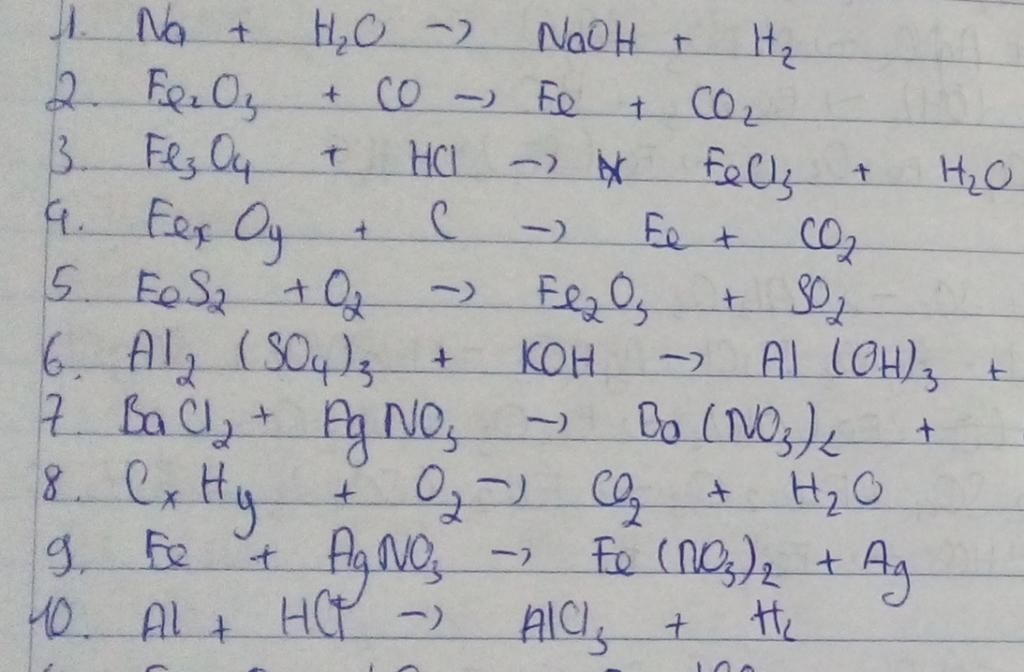 1. Na + H₂O → NaOH + H₂
2. Fe₂O₃ + CO → Fe + CO₂
3. Fe₃O₄ + HCl → FeCl₃ + H₂O
4. FeₓOy + C → Fe + CO₂
5. FeS₂ + O₂ → Fe₂O₃ + SO₂
6. Al₂(SO₄)₃ + KOH → Al(OH)₃ +
7. BaCl₂ + AgNO₃ → Ba(NO₃)₂ +
8. CₓHy + O₂ → CO₂ + H₂O
9. Fe + AgNO₃ → Fe(NO₃)₂ + Ag
10. Al + HCl → AlCl₃ + H₂